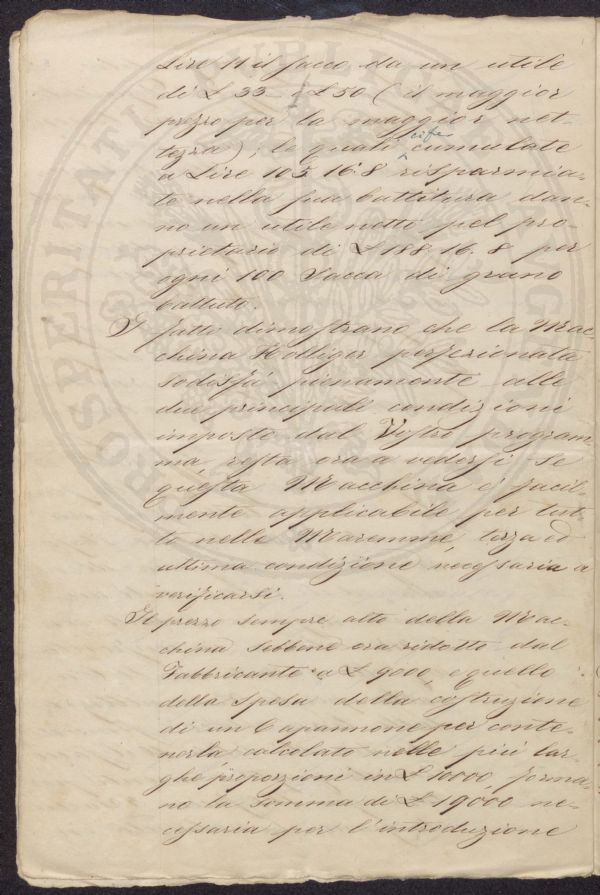 Lire 11 il sacco da un utile
di £ 33 a £ 50 (il maggior
prezzo per la maggior net-
tezza), le quali cumulate
a Lire 105.16.8 risparmia-
te nella sua battitura dan-
no un utile netto pel pro-
prietario di £ 188.16.8 per
ogni 100 Sacca di grano
battuto.
I fatti dimostrano che la Mac-
china perfezionata
sodisfà pienamente alle
due principali condizioni
imposte dal Vostro program-
ma, resta ora a vedersi se
questa Macchina è facil-
mente applicabile per tut-
to nelle Maremme, terza ed
ultima condizione necessaria a
verificarsi.
Il prezzo sempre alto della Mac-
china sebbene ora ridotto dal
Fabbricante a £ 9000, e quello
della spesa della costruzione
di un Capannone per conte-
nerla calcolato nelle più lar-
ghe proporzioni in £ 10000, forma-
no la Somma di £ 19000 ne-
cessaria per l'introduzione
PROSPERITATI PUBLICAE AUGENDAE